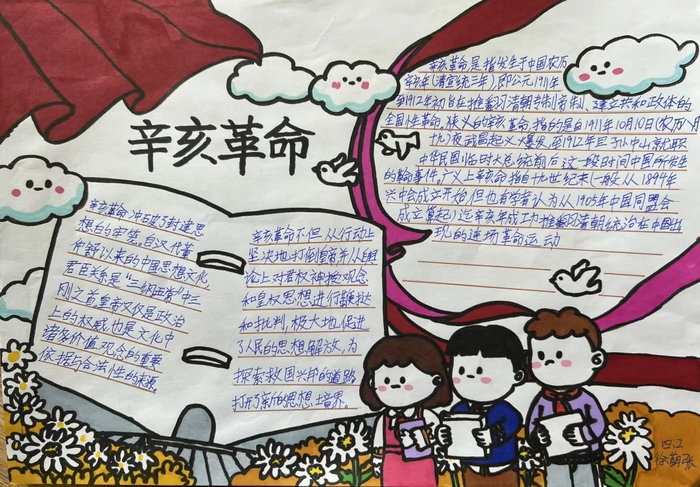 辛亥革命
辛亥革命是指发生于中国农历
辛亥年(清宣统三年),即公元1911年
至1912年初,旨在推翻清朝专制帝制、建立共和政体的
全国性革命。狭义的辛亥革命,指的是自1911年10月10日(农历八月
十九)夜武昌起义爆发,至1912年
孙中山就职
中华民国临时大总统前后这一段时间中国所发生
的革命事件。广义上辛亥革命指自十九世纪末(一般从1894年
兴中会成立开始,但也有学者认为从1905年中国同盟会
成立算起)迄辛亥年成功推翻清朝统治在中国出
现的连场革命运动
辛亥革命冲破了封建思
想的牢笼。自汉代董
仲舒以来的中国思想文化,
君臣关系是“三纲五常”中三
刚之首,皇帝又仅是政治
上的权威,也是文化中
诸多价值观念的重要
依据与合法性的来源
辛亥革命不但从行动上
坚决地打倒皇帝,从
论上对君权神授观念
和皇权思想进行鞭挞
和批判,极大地促进
了人民的思想解放,为
探索救国兴邦的道路
打开了新的思想境界。
四.2
徐萌张